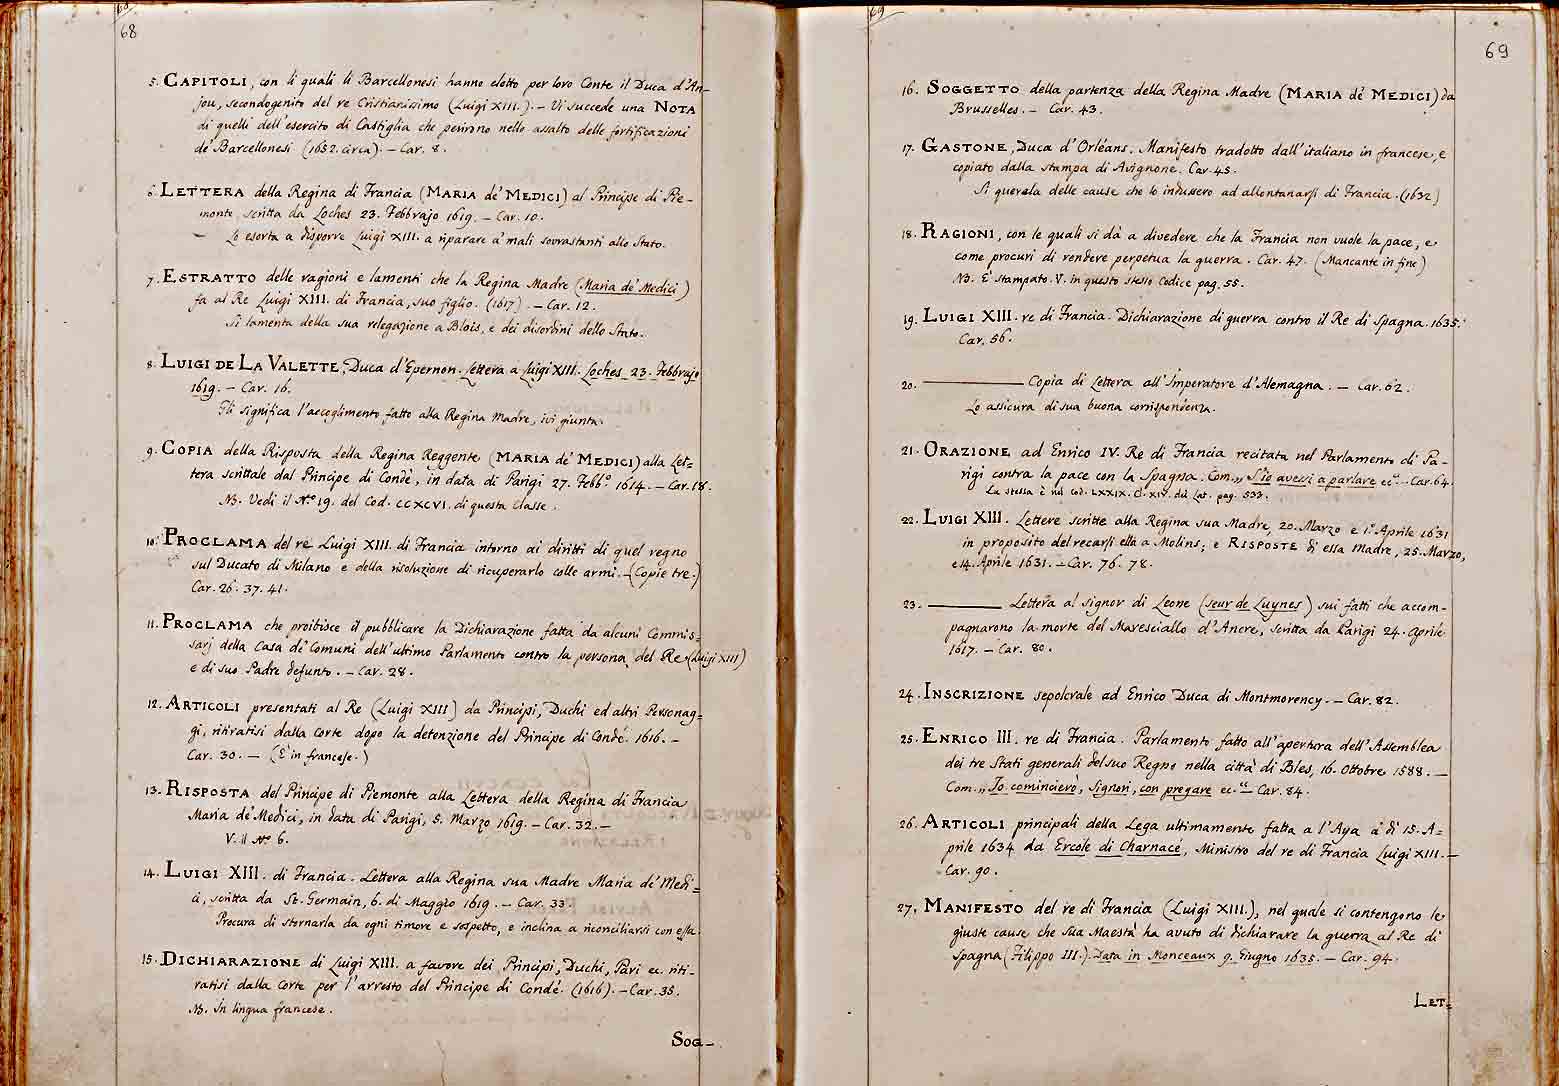 68
68
5. CAPITOLI, con li quali li Barcellonesi hanno eletto per loro Conte il Duca d'An-
jou, secondogenito del re Cristianissimo (Luigi XIII.). - Vi succede una NOTA
di quelli dell'esercito di Castiglia che perirono nello assalto delle fortificazioni
de' Barcellonesi (1652. circa). - Car. 8.
6. LETTERA della Regina di Francia (MARIA de' MEDICI) al Principe di Pie-
monte, scritta da Loches 23. Febbrajo 1619. - Car. 10.
- Lo esorta a disporre Luigi XIII. a riparare a' mali sovrastanti allo Stato.
7. ESTRATTO delle ragioni e lamenti che la Regina Madre (Maria de' Medici)
fa al Re Luigi XIII. di Francia, suo figlio. (1617). - Car. 12.
Si lamenta della sua relegazione a Blois, e dei disordini dello Stato.
8. LUIGI DE LA VALETTE, Duca d'Epernon. Lettera a Luigi XIII. Loches 23. Febbrajo
1619. - Car. 16.
Gli significa l'accoglimento fatto alla Regina Madre, ivi giunta.
9. COPIA della Risposta della Regina Reggente (MARIA de' MEDICI) alla Let=
tera scrittale dal Principe di Condè, in data di Parigi 27. Febb.° 1614. - Car. 18.
NB. Vedi il N.° 19. del Cod. CCXCVI. di questa Classe.
10. PROCLAMA del re Luigi XIII. di Francia intorno ai diritti di quel regno
sul Ducato di Milano e della risoluzione di ricuperarlo colle armi. - (Copie tre.)
Car. 26. 37. 41.
11. PROCLAMA che proibisce il pubblicare la Dichiarazione fatta da alcuni Commis=
sarj della Casa de' Comuni dell'ultimo Parlamento contro la persona del Re (Luigi XIII)
e di suo Padre defunto. - Car. 28.
12. ARTICOLI presentati al Re (Luigi XIII) da Principi, Duchi ed altri Personag=
gi, ritiratisi dalla Corte dopo la detenzione del Principe di Condé. 1616. -
Car. 30. - (È in francese.)
13. RISPOSTA del Principe di Piemonte alla Lettera della Regina di Francia
Maria de' Medici, in data di Parigi, 5. Marzo 1619. - Car. 32. -
V. il N.° 6.
14. LUIGI XIII. di Francia. Lettera alla Regina sua Madre Maria de' Medi=
ci, scritta da St. Germain, 6. di Maggio 1619. - Car. 33.
Procura di stornarla da ogni timore e sospetto, e inclina a riconciliarsi con essa.
15. DICHIARAZIONE di Luigi XIII. a favore dei Principi, Duchi, Pari ec. riti-
ratisi dalla Corte per l'arresto del Principe di Condé. (1616). - Car. 35.
NB. In lingua francese.
SOG-
69
69
16. SOGGETTO della partenza della Regina Madre (MARIA de' MEDICI) da
Brusselles. - Car. 43.
17. GASTONE, Duca d'Orléans. Manifesto tradotto dall'italiano in francese, e
copiato dalla stampa di Avignone. Car. 45.
Si querela delle cause che lo indussero ad allontanarsi di Francia. (1632)
18. RAGIONI, con le quali si dà a divedere che la Francia non vuole la pace, e
come procuri di rendere perpetua la guerra. Car. 47. (Mancante in fine)
NB. È stampato. V. in questo stesso Codice pag. 55.
19. LUIGI XIII. re di Francia. Dichiarazione di guerra contro il Re di Spagna. 1635.
Car. 56.
20. ———— Copia di Lettera all'Imperatore d'Alemagna. - Car. 62.
Lo assicura di sua buona corrispondenza.
21. ORAZIONE ad Enrico IV. Re di Francia recitata nel Parlamento di Pa-
rigi contra la pace con la Spagna. Com. „ S'io avessi a parlare ec. - Car. 64.
La stessa è nel cod. LXXIX. Cl. XIV. dei Lat. pag. 533.
22. LUIGI XIII. Lettere scritte alla Regina sua Madre, 20. Marzo e 1.° Aprile 1631
in proposito del recarsi ella a Molins; e RISPOSTE di essa Madre, 25. Marzo,
e 14. Aprile 1631. - Car. 76. 78.
23. ———— Lettera al signor di Leone (seur de Luynes) sui fatti che accom-
pagnarono la morte del Maresciallo d'Ancre, scritta da Parigi 24. Aprile
1617. - Car. 80.
24. INSCRIZIONE sepolcrale ad Enrico Duca di Montmorency. - Car. 82.
25. ENRICO III. re di Francia. Parlamento fatto all'apertura dell'Assemblea
dei tre Stati generali del suo Regno nella città di Bles, 16. Ottobre 1588. -
Com. „ Io comincierò, Signori, con pregare ec. “ Car. 84.
26. ARTICOLI principali della Lega ultimamente fatta a l'Aya a' dì 15. A=
prile 1634 da Ercole di Charnacé, Ministro del re di Francia Luigi XIII. -
Car. 90.
27. MANIFESTO del re di Francia (Luigi XIII.), nel quale si contengono le
giuste cause che Sua Maestà ha avuto di dichiarare la guerra al Re di
Spagna (Filippo III.). Data in Monceaux 9. Giugno 1635. - Car. 94.
LET=